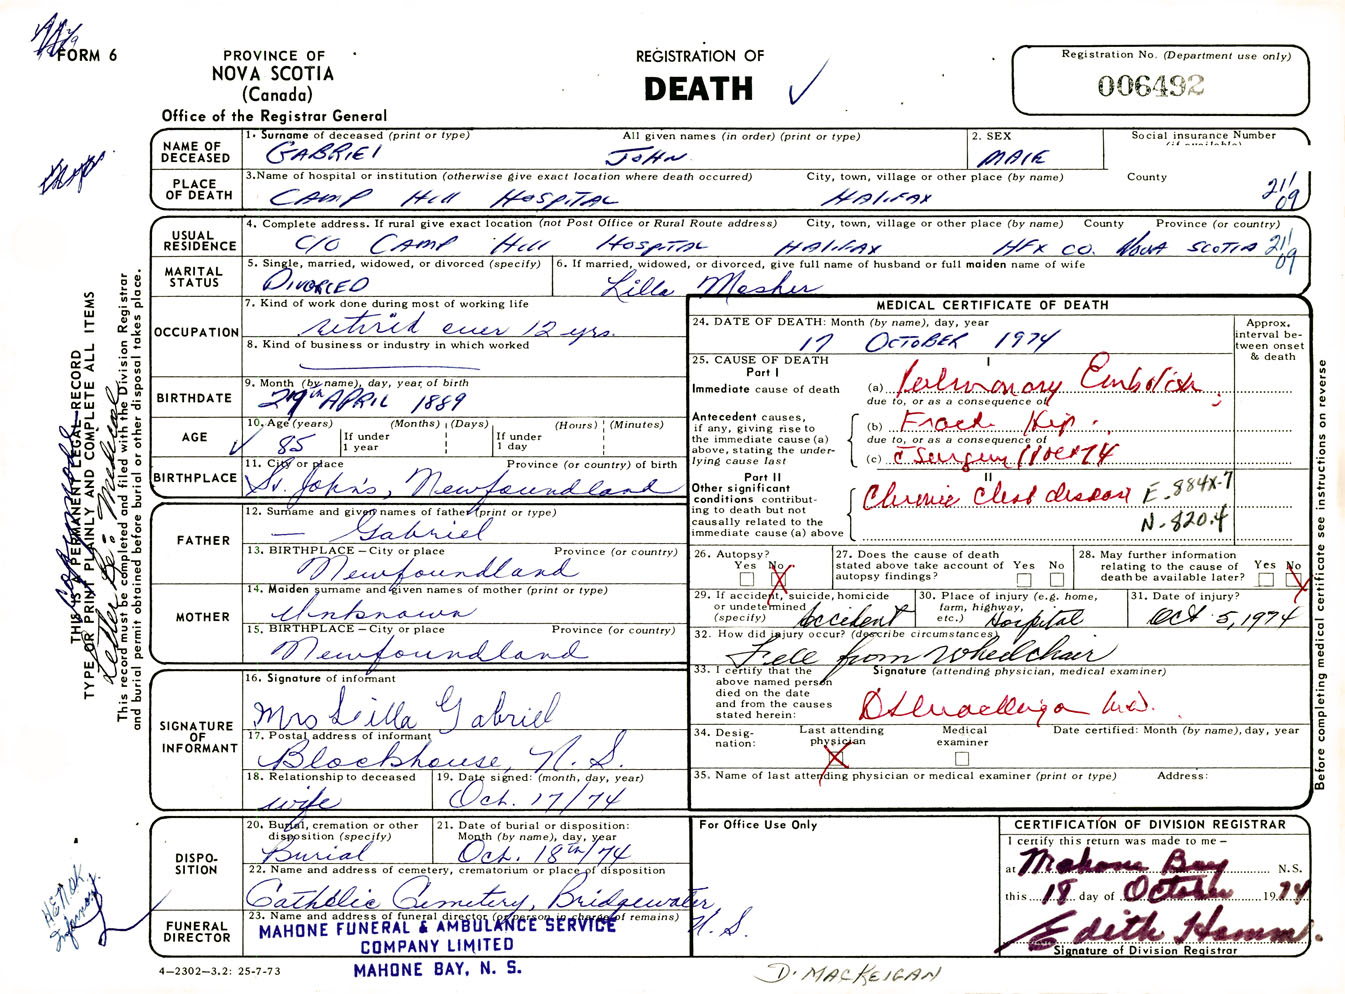 FORM 6
PROVINCE OF
NOVA SCOTIA
(Canada)
Office of the Registrar General
REGISTRATION OF
DEATH
Registration No. (Department use only)
006492
NAME OF DECEASED
1. Surname of deceased (print or type) All given names (in order) (print or type)
GABRIEL JOHN
2. SEX
MALE
Social insurance Number
PLACE OF DEATH
3.Name of hospital or institution (otherwise give exact location where death occurred) City, town, village or other place (by name) County
CAMP HILL HOSPITAL HALIFAX 211/09
USUAL RESIDENCE
4. Complete address. If rural give exact location (not Post Office or Rural Route address) City, town, village or other place (by name) County Province (or country)
C/O CAMP HILL HOSPITAL HALIFAX HFX CO. NOVA SCOTIA 211/09
MARITAL STATUS
5. Single, married, widowed, or divorced (specify)
DIVORCED
6. If married, widowed, or divorced, give full name of husband or full maiden name of wife
Lilla Mosher
OCCUPATION
7. Kind of work done during most of working life
retired over 12 yrs.
8. Kind of business or industry in which worked
BIRTHDATE
9. Month (by name), day, year of birth
29th APRIL 1889
AGE
10. Age (years) (Months) (Days) (Hours) (Minutes)
85 If under 1 year If under 1 day
BIRTHPLACE
11. City or place Province (or country) of birth
St. John's, Newfoundland
FATHER
12. Surname and given names of father (print or type)
— Gabriel
13. BIRTHPLACE – City or place Province (or country)
Newfoundland
MOTHER
14. Maiden surname and given names of mother (print or type)
Unknown
15. BIRTHPLACE – City or place Province (or country)
Newfoundland
SIGNATURE OF INFORMANT
16. Signature of informant
Mrs Lilla Gabriel
17. Postal address of informant
Blockhouse, N. S.
18. Relationship to deceased
wife
19. Date signed: (month, day, year)
Oct. 17/74
DISPOSITION
20. Burial, cremation or other disposition (specify)
Burial
21. Date of burial or disposition: Month (by name), day, year
Oct. 18th/74
22. Name and address of cemetery, crematorium or place of disposition
Catholic Cemetery, Bridgewater N. S.
FUNERAL DIRECTOR
23. Name and address of funeral director (or person in charge of remains)
MAHONE FUNERAL & AMBULANCE SERVICE
COMPANY LIMITED
MAHONE BAY, N. S.
4–2302–3.2: 25-7-73
MEDICAL CERTIFICATE OF DEATH
24. DATE OF DEATH: Month (by name), day, year
17 OCTOBER 1974
Approx. interval between onset & death
25. CAUSE OF DEATH
Part I
I
Immediate cause of death
(a) Pulmonary Embolism
due to, or as a consequence of
Antecedent causes, if any, giving rise to the immediate cause (a) above, stating the underlying cause last
(b) Fract Hip.
due to, or as a consequence of
(c) c̄ surgery 11 Oct 74
Part II
II
Other significant conditions contributing to death but not causally related to the immediate cause (a) above
Chronic Chest disease
E-884X-7
N-820.4
26. Autopsy?
Yes No
27. Does the cause of death stated above take account of autopsy findings?
Yes No
28. May further information relating to the cause of death be available later?
Yes No
29. If accident, suicide, homicide or undetermined (specify)
Accident
30. Place of injury (e.g. home, farm, highway, etc.)
Hospital
31. Date of injury?
Oct 5, 1974
32. How did injury occur? (describe circumstances)
Fell from Wheelchair
33. I certify that the above named person died on the date and from the causes stated herein:
Signature (attending physician, medical examiner)
34. Designation:
Last attending physician
Medical examiner
Date certified: Month (by name), day, year
35. Name of last attending physician or medical examiner (print or type) Address:
For Office Use Only
CERTIFICATION OF DIVISION REGISTRAR
I certify this return was made to me –
at Mahone Bay N.S.
this 18 day of October 1974
Signature of Division Registrar
D. MACKEIGAN
THIS IS A PERMANENT LEGAL RECORD
TYPE OR PRINT PLAINLY AND COMPLETE ALL ITEMS
This record must be completed and filed with the Division Registrar
and burial permit obtained before burial or other disposal takes place.
Before completing medical certificate see instructions on reverse